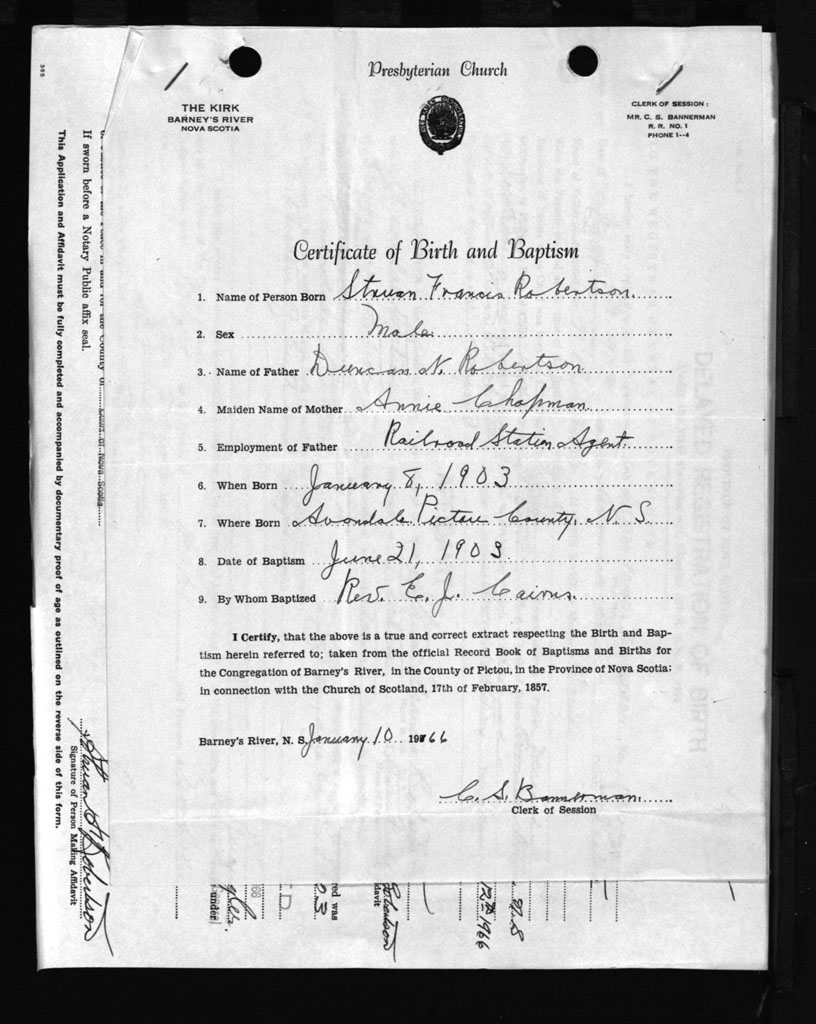 Presbyterian Church
THE KIRK
BARNEY'S RIVER
NOVA SCOTIA
CLERK OF SESSION:
MR. C. S. BANNERMAN
R. R. NO. 1
PHONE 1--4
Certificate of Birth and Baptism
1. Name of Person Born Struan Francis Robertson
2. Sex Male
3. Name of Father Duncan N. Robertson
4. Maiden Name of Mother Annie Chapman
5. Employment of Father Railroad Station Agent
6. When Born January 8, 1903
7. Where Born Avondale Pictou County, N. S.
8. Date of Baptism June 21, 1903
9. By Whom Baptized Rev. E. J. Cairns.
I Certify, that the above is a true and correct extract respecting the Birth and Bap-
tism herein referred to; taken from the official Record Book of Baptisms and Births for
the Congregation of Barney's River, in the County of Pictou, in the Province of Nova Scotia:
in connection with the Church of Scotland, 17th of February, 1857.
Barney's River, N. S. January 10 1966
C. S. Bannerman
Clerk of Session
If sworn before a Notary Public affix seal.
This Application and Affidavit must be fully completed and accompanied by documentary proof of age as outlined on the reverse side of this form.
Signature of Person Making Affidavit
N. S
12th 1966
Robertson
davit
red was
03
D
under